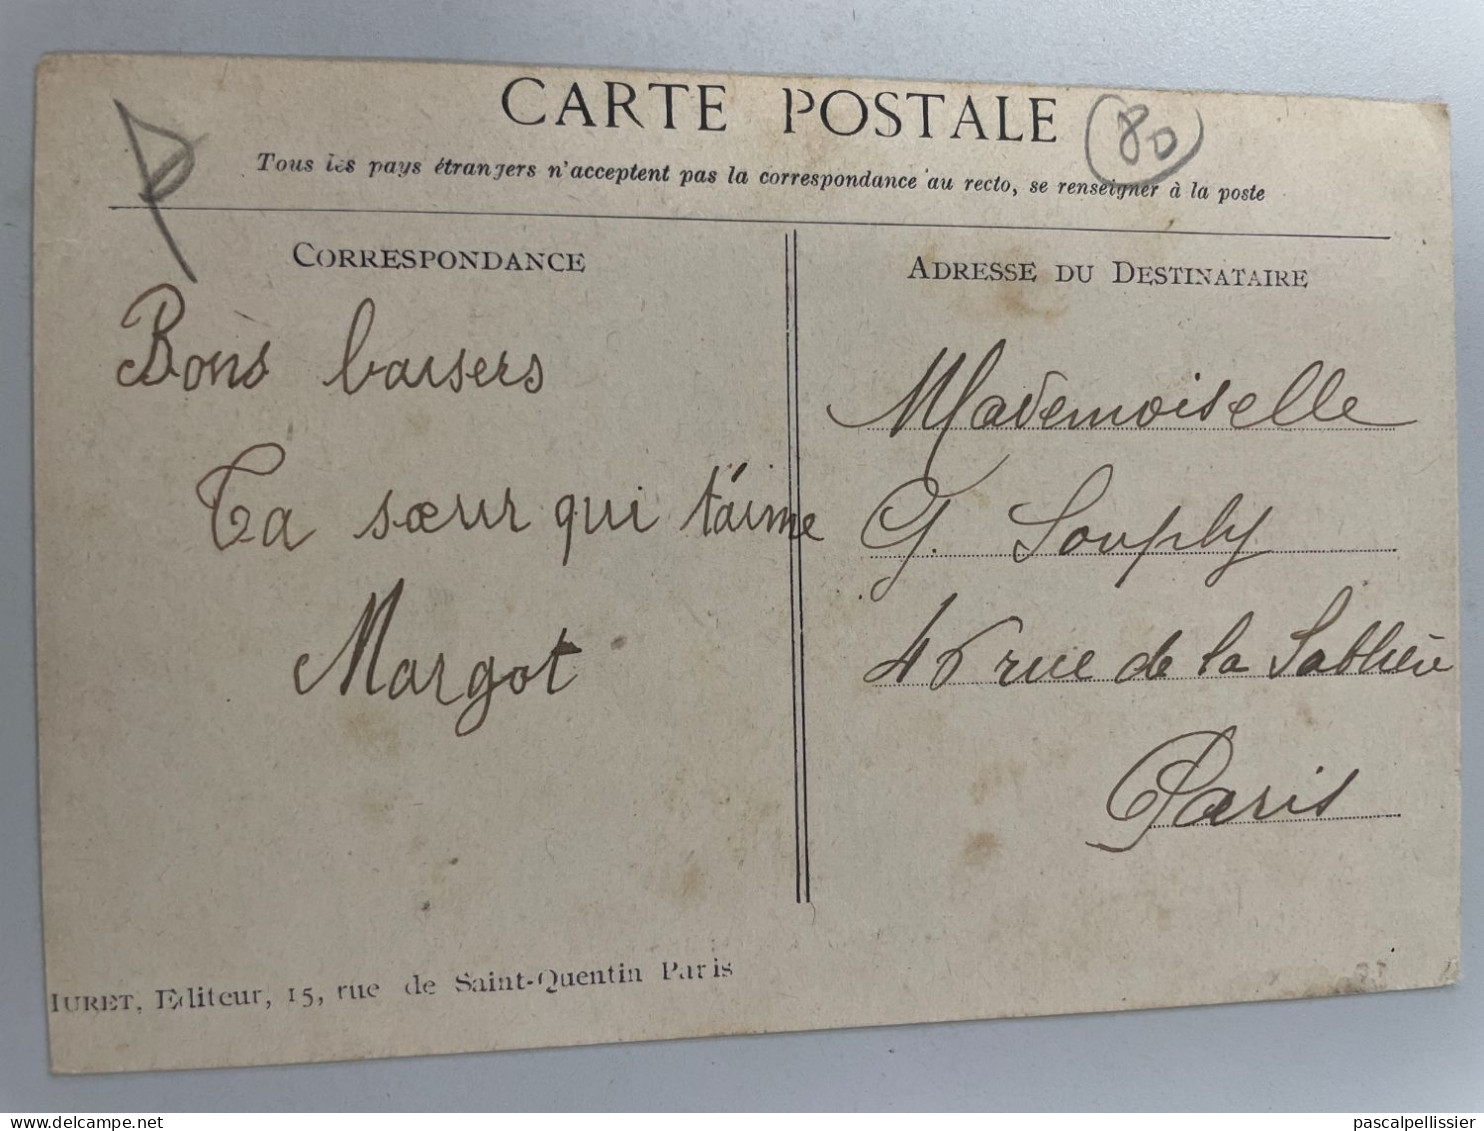 CARTE POSTALE
80
Tous les pays étrangers n'acceptent pas la correspondance au recto, se renseigner à la poste
CORRESPONDANCE
Bons baisers
Ta sœur qui t'aime
Margot
ADRESSE DU DESTINATAIRE
Mademoiselle
G. Souply
46 rue de la Sablière
Paris
IURET, Editeur, 15, rue de Saint-Quentin Paris
pascalpellissier